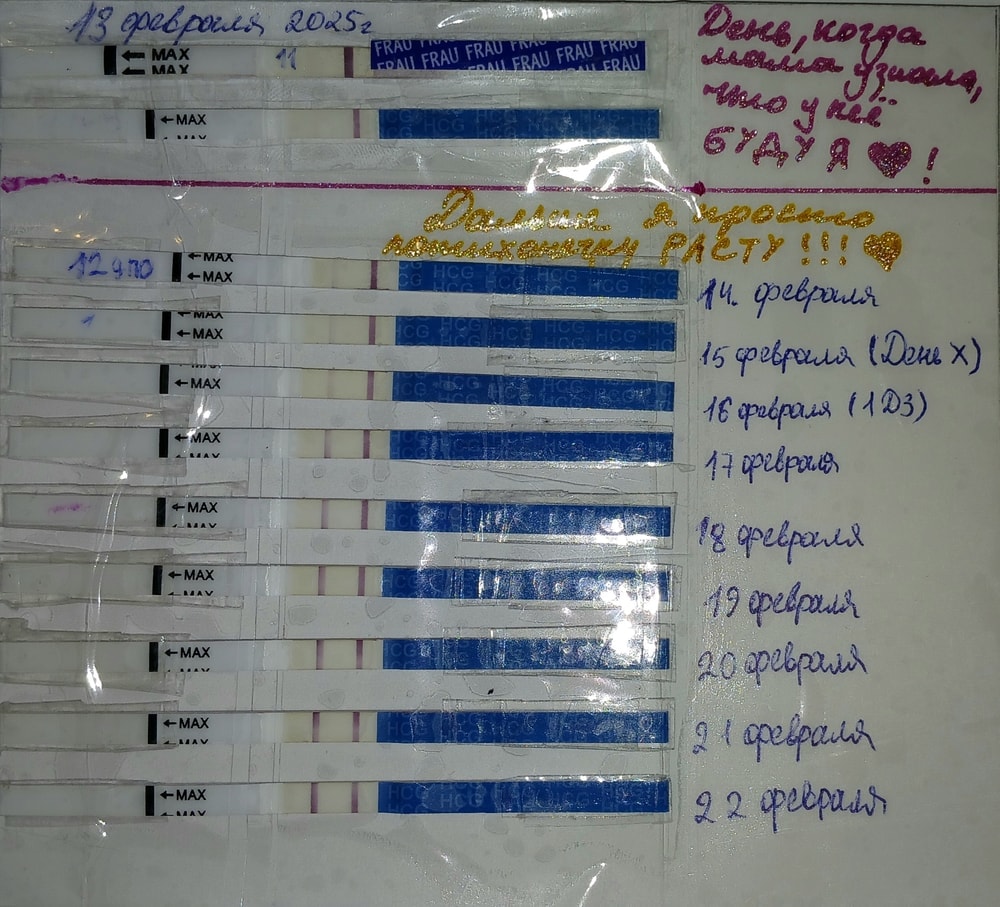 13 февраля 2025г
День, когда
мама узнала,
что у неё
БУДУ Я ♥!
MAX
MAX
11
FRAU FRAU FRAU FRAU FRAU
FRAU FRAU FRAU FRAU FRAU
←MAX
MAX
Дальше я просто
потихонечку РАСТУ!!! ♥
12 дпо
←MAX
←MAX
HCG
14 февраля
MAX
←MAX
HCG
15 февраля (День X)
←MAX
HCG
16 февраля (1ДЗ)
←MAX
MAX
HCG
17 февраля
←MAX
MAX
HCG
18 февраля
←MAX
MAX
HCG
19 февраля
←MAX
MAX
HCG
20 февраля
←MAX
MAX
HCG
21 февраля
←MAX
MAX
HCG
22 февраля